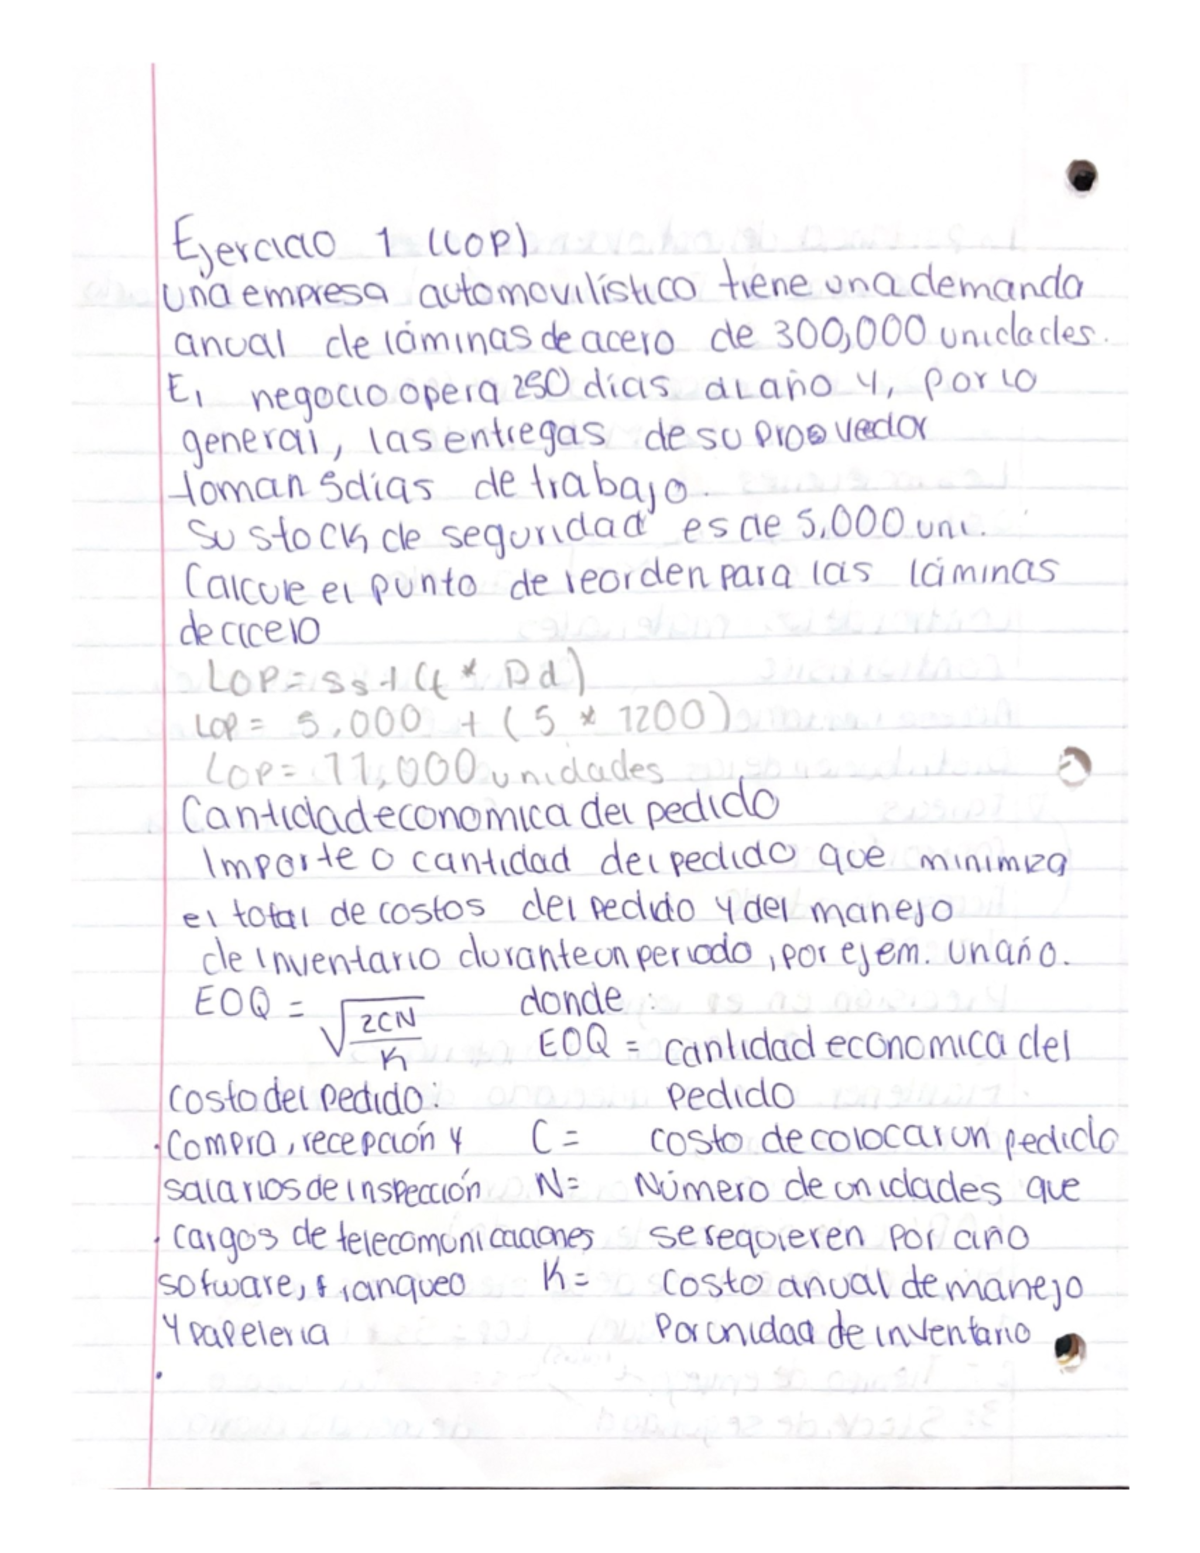 Ejercicio 1 (LOP)
una empresa automovilístico tiene una demanda
anual de láminas de acero de 300,000 unidades.
El negocio opera 250 días al año y, por lo
general, las entregas de su proovedor
toman 5 días de trabajo.
Su stock de seguridad es de 5,000 uni.
Calcule el punto de reorden para las láminas
de acero
LOP = ss + (t * Dd)
LOP = 5,000 + (5 * 1200)
LOP = 11,000 unidades
Cantidad economica del pedido
Importe o cantidad del pedido que minimiza
el total de costos del pedido y del manejo
de inventario durante un periodo, por ejem. un año.
EOQ = √2CN/K donde:
EOQ = cantidad economica del
pedido
costo del pedido:
· Compra, recepción y C = costo de colocar un pedido
salarios de inspección N = Número de unidades que
· cargos de telecomunicaciones se requieren por año
sofware, franqueo K = Costo anual de manejo
y papeleria por unidad de inventario
·